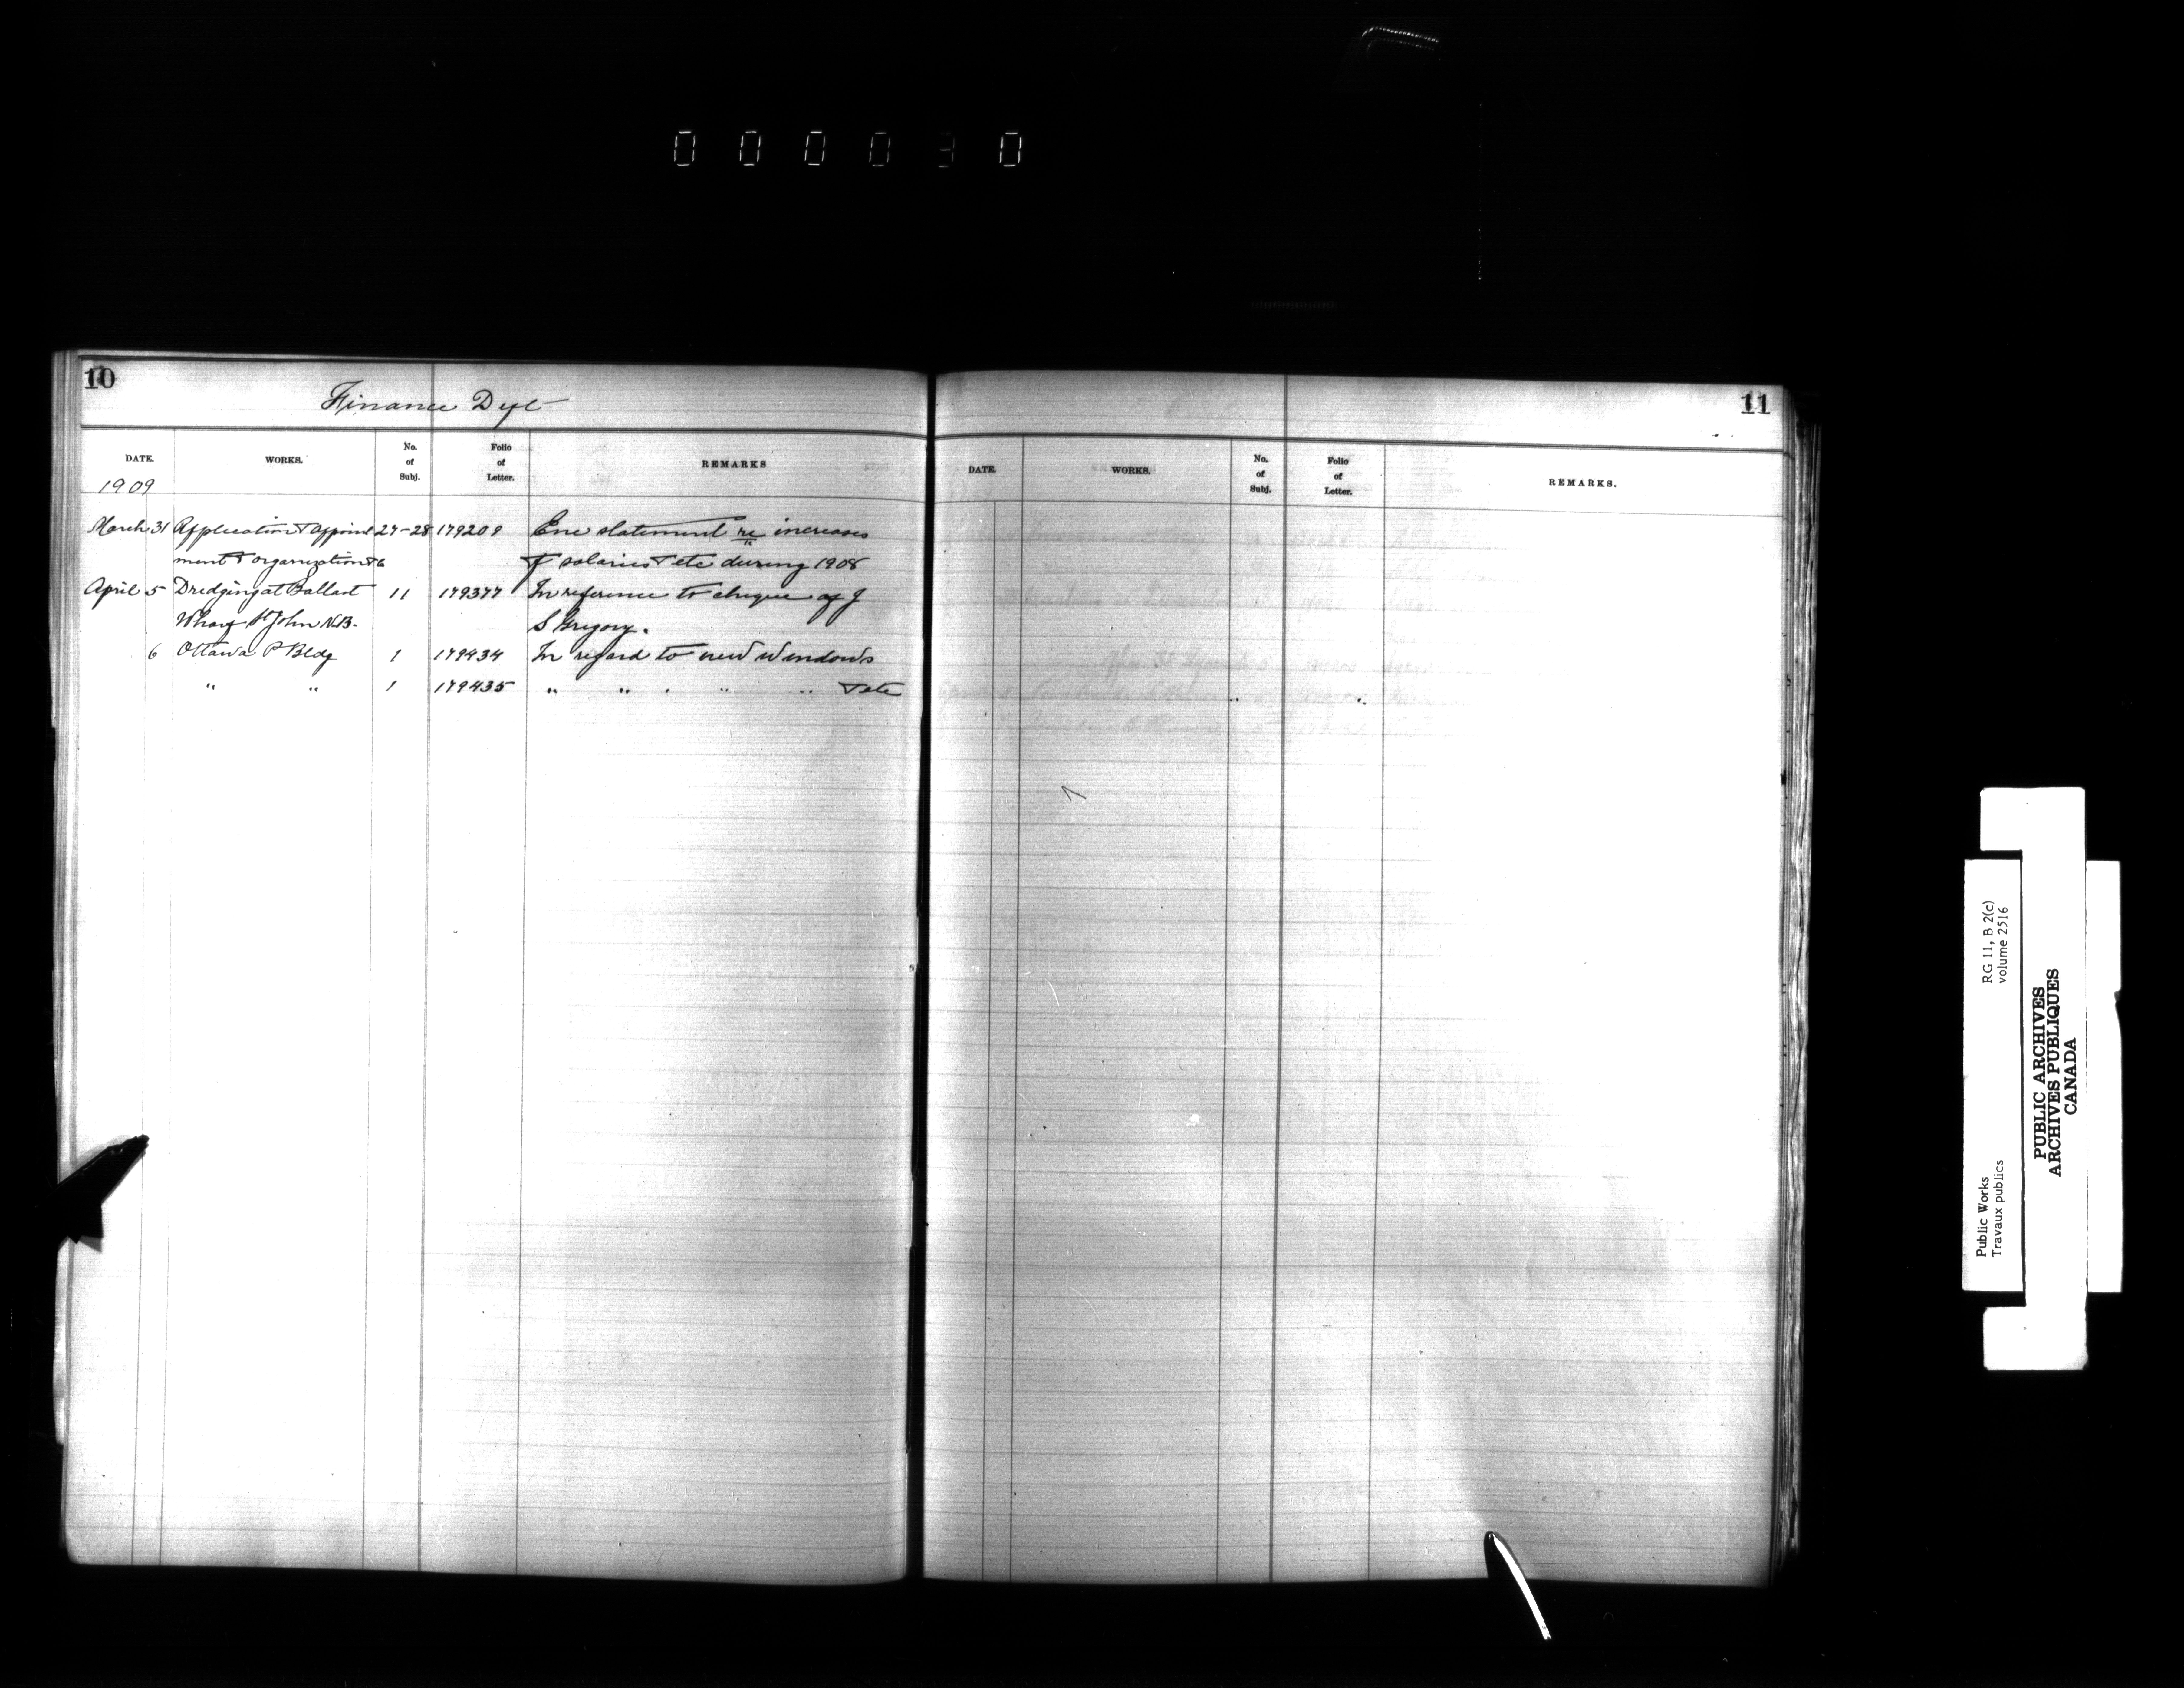 000030
10
Finance Dept
DATE. WORKS. No. of Subj. Folio of Letter. REMARKS
1909
March 31 Application & appoint 27-28 179209 Enc statement re increases
ment & organization & of salaries & etc during 1908
April 5 Dredging at Ballast 11 179377 In reference to cheque of J
Wharf St John N.B. S Gregory.
6 Ottawa P Bldg 1 179434 In regard to new windows
" " 1 179435 " " " " & etc
11
DATE. WORKS. No. of Subj. Folio of Letter. REMARKS.
Public Works RG 11, B 2(c)
Travaux publics volume 2516
PUBLIC ARCHIVES
ARCHIVES PUBLIQUES
CANADA